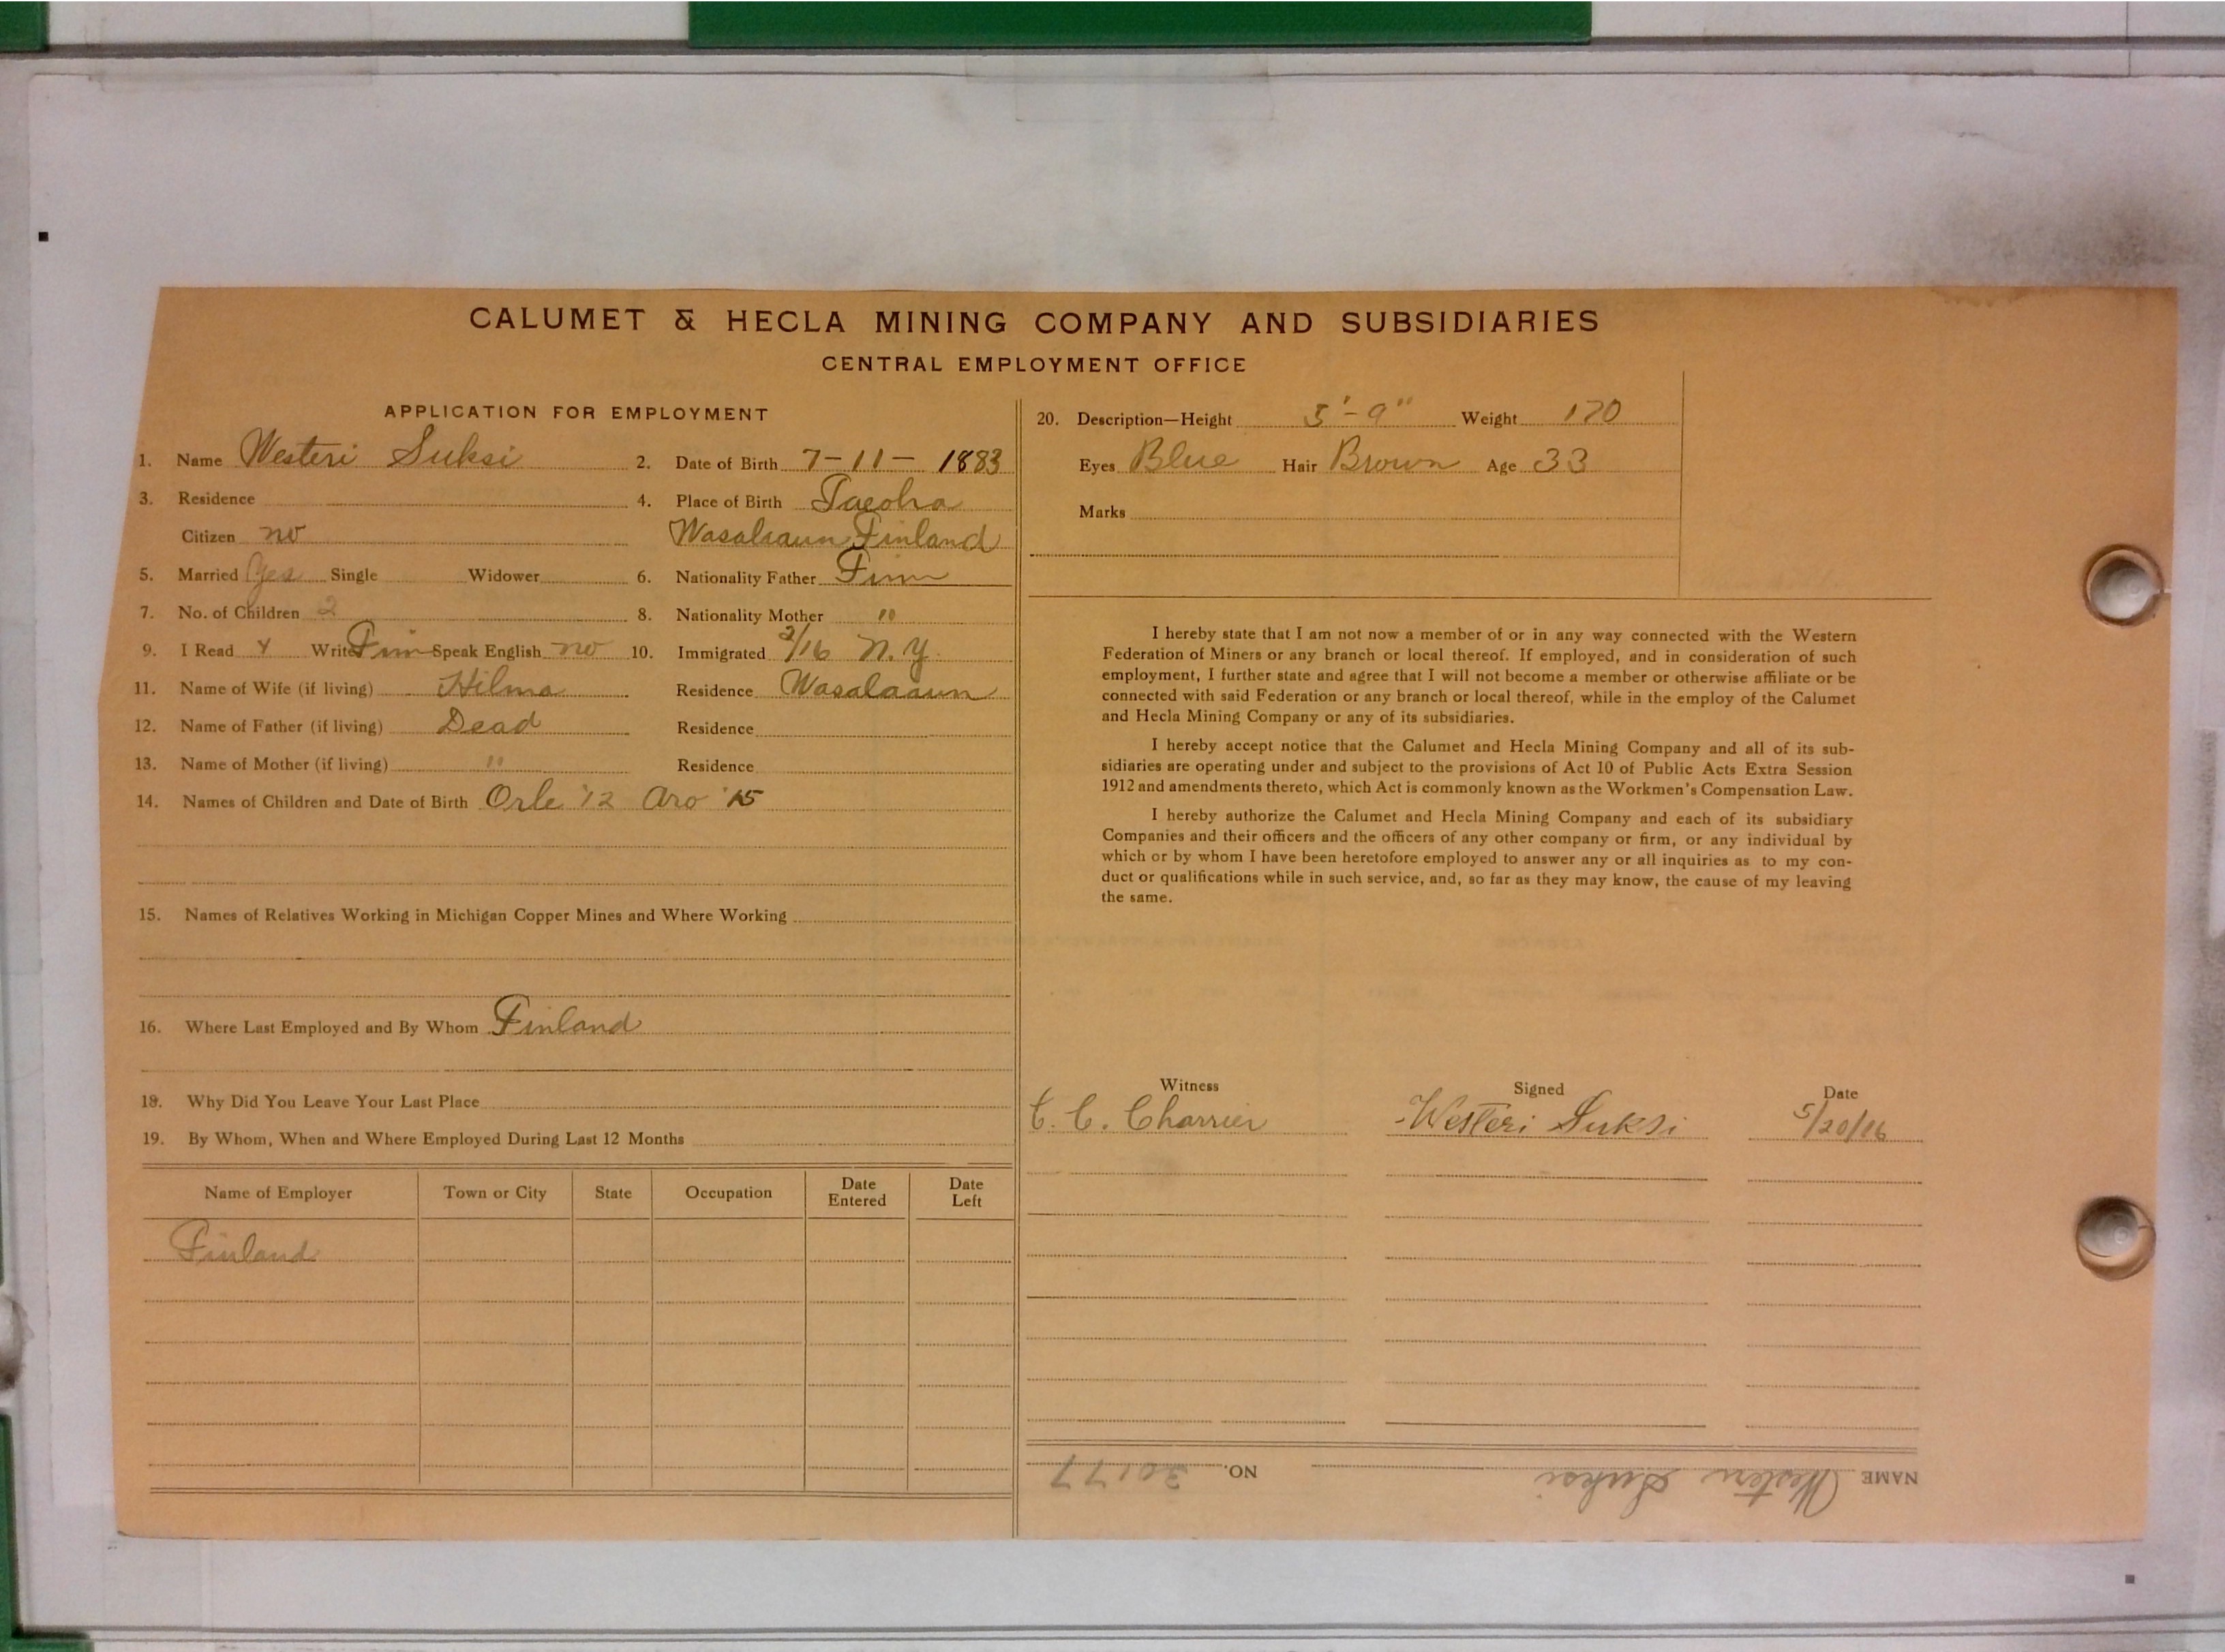 CALUMET & HECLA MINING COMPANY AND SUBSIDIARIES
CENTRAL EMPLOYMENT OFFICE
APPLICATION FOR EMPLOYMENT
1. Name Westeri Suksi 2. Date of Birth 7-11- 1883
3. Residence 4. Place of Birth
Citizen no Finland
5. Married Yes Single Widower 6. Nationality Father Finn
7. No. of Children 2 8. Nationality Mother "
9. I Read Y Write Finn Speak English no 10. Immigrated 2/16 N.Y.
11. Name of Wife (if living) Hilma Residence Wasalaaun
12. Name of Father (if living) Dead Residence
13. Name of Mother (if living) " Residence
14. Names of Children and Date of Birth Orle '12 Aro '15
15. Names of Relatives Working in Michigan Copper Mines and Where Working
16. Where Last Employed and By Whom Finland
18. Why Did You Leave Your Last Place
19. By Whom, When and Where Employed During Last 12 Months
Name of Employer Town or City State Occupation Date Entered Date Left
Finland
20. Description—Height 5'-9" Weight 170
Eyes Blue Hair Brown Age 33
Marks
I hereby state that I am not now a member of or in any way connected with the Western
Federation of Miners or any branch or local thereof. If employed, and in consideration of such
employment, I further state and agree that I will not become a member or otherwise affiliate or be
connected with said Federation or any branch or local thereof, while in the employ of the Calumet
and Hecla Mining Company or any of its subsidiaries.
I hereby accept notice that the Calumet and Hecla Mining Company and all of its sub-
sidiaries are operating under and subject to the provisions of Act 10 of Public Acts Extra Session
1912 and amendments thereto, which Act is commonly known as the Workmen's Compensation Law.
I hereby authorize the Calumet and Hecla Mining Company and each of its subsidiary
Companies and their officers and the officers of any other company or firm, or any individual by
which or by whom I have been heretofore employed to answer any or all inquiries as to my con-
duct or qualifications while in such service, and, so far as they may know, the cause of my leaving
the same.
Witness Signed Date
C. C. Charrier Westeri Suksi 5/20/16
NAME Westeri Suksi NO. 30177